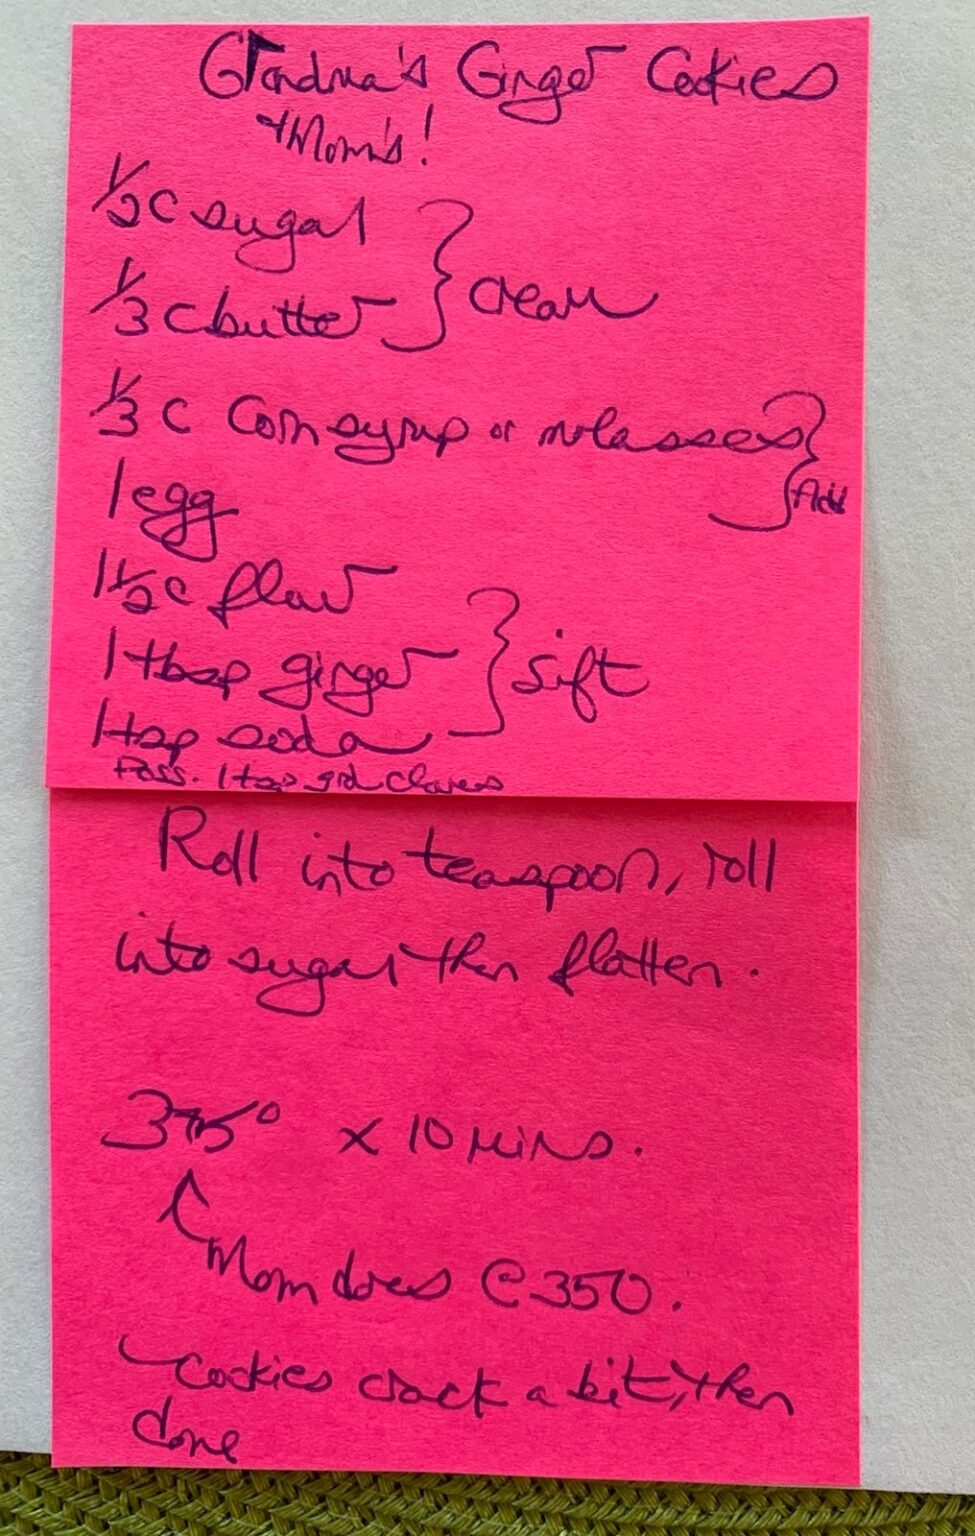 Grandma's Ginger Cookies
+ Mom's!
1/2 c sugar
1/3 c butter } cream
1/3 c Corn syrup or molasses
1 egg } Add
1 1/2 c flour
1 tbsp ginger } sift
1 tsp soda
Poss. 1 tsp grd cloves
Roll into teaspoon, roll
into sugar then flatten.
375° x 10 mins.
Mom does @ 350.
- Cookies crack a bit, then
done